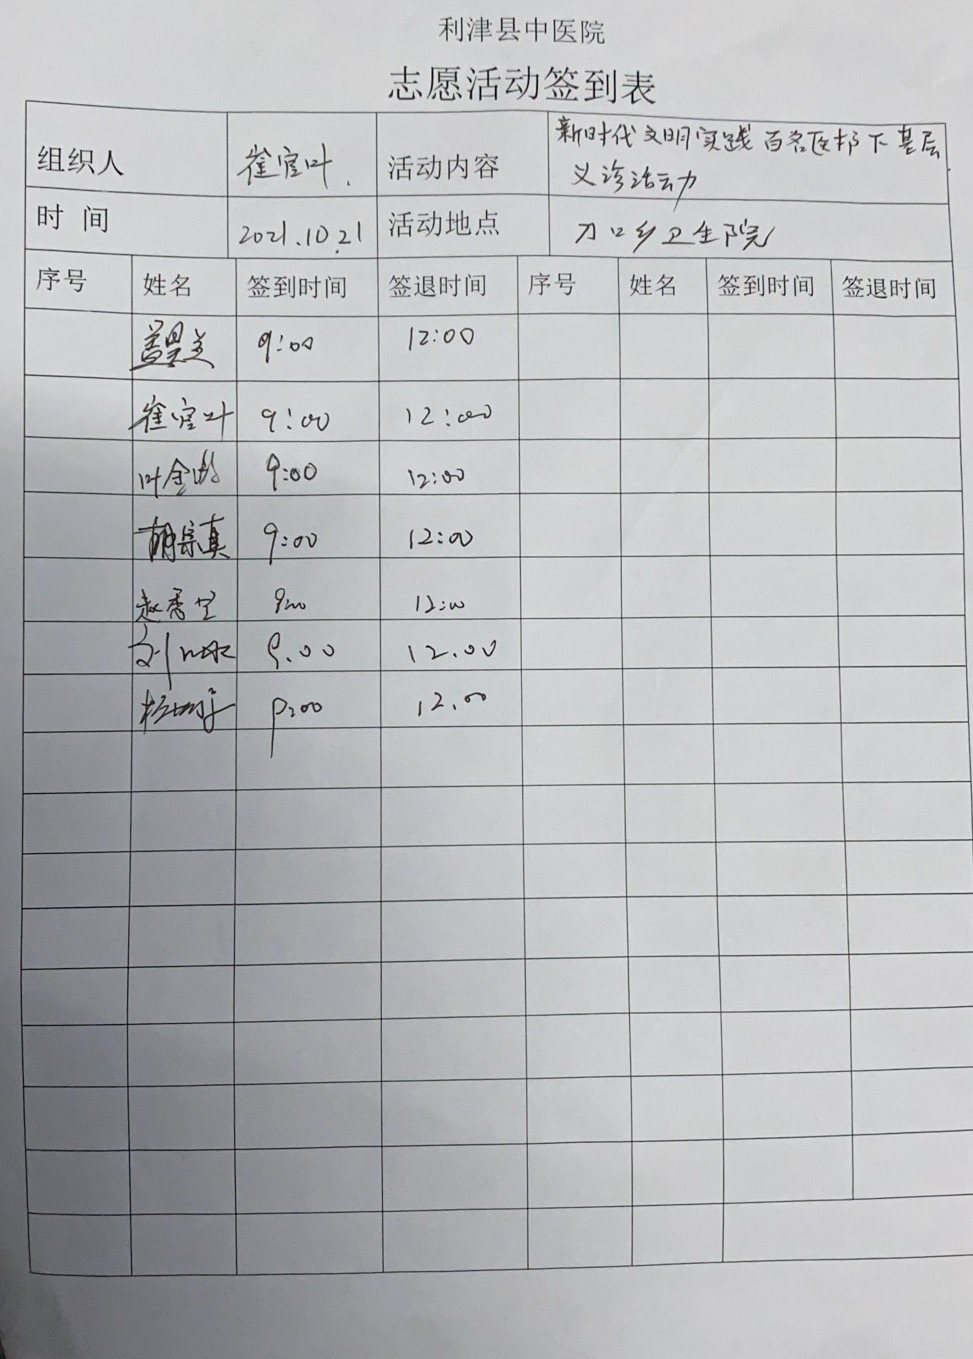 利津县中医院
志愿活动签到表
组织人 崔官叶. 活动内容 新时代文明实践百名医护下基层
义诊活动
时 间 2021.10.21 活动地点 刁口乡卫生院
序号 姓名 签到时间 签退时间 序号 姓名 签到时间 签退时间
9:00 12:00
崔官叶 9:00 12:00
叶金 9:00 12:00
胡宗真 9:00 12:00
赵秀 9:00 12:00
刘 9.00 12.00
9:00 12.00